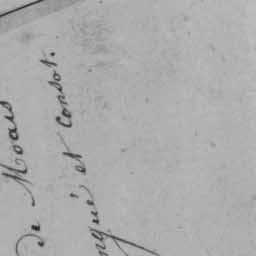 de Moais
ngué et Consot.